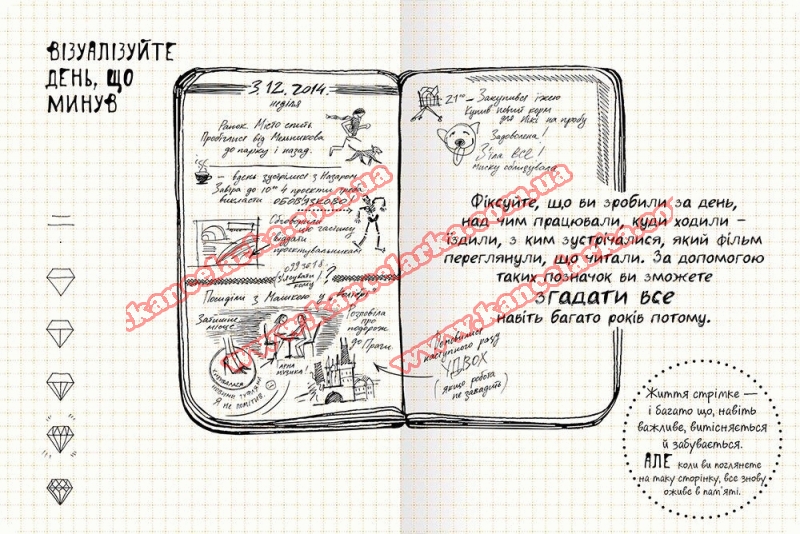 ВІЗУАЛІЗУЙТЕ
ДЕНЬ, ЩО
МИНУВ
3.12.2014.
неділя
Ранок. Місто спить
Пробіглися від Мельникова
до парку і назад.
– вдень зустрілися з Назаром.
Завтра до 10⁰⁰ 4 проекти треба
викласти ОБОВ'ЯЗКОВО!
цю частину
?
Посиділи з Машкою у
Затишне
місце
Гарна
музика!
Розповіла
про
подорож
до Праги.
Я не помітив.
21⁰⁰ – Закупився їжею
Купив новий корм
для Нікі на пробу
Задоволена!
З'їла ВСЕ!
миску облизувала
Фіксуйте, що ви зробили за день,
над чим працювали, куди ходили –
їздили, з ким зустрічалися, який фільм
переглянули, що читали. За допомогою
таких позначок ви зможете
ЗГАДАТИ ВСЕ
навіть багато років потому.
Домовились
наступного разу
УДВОХ
(якщо робота
не завадить)
Життя стрімке —
і багато що, навіть
важливе, витісняється
й забувається.
АЛЕ коли ви поглянете
на таку сторінку, все знову
оживе в пам'яті.
www.kancelarka.com.ua
www.kancelarka.com.ua